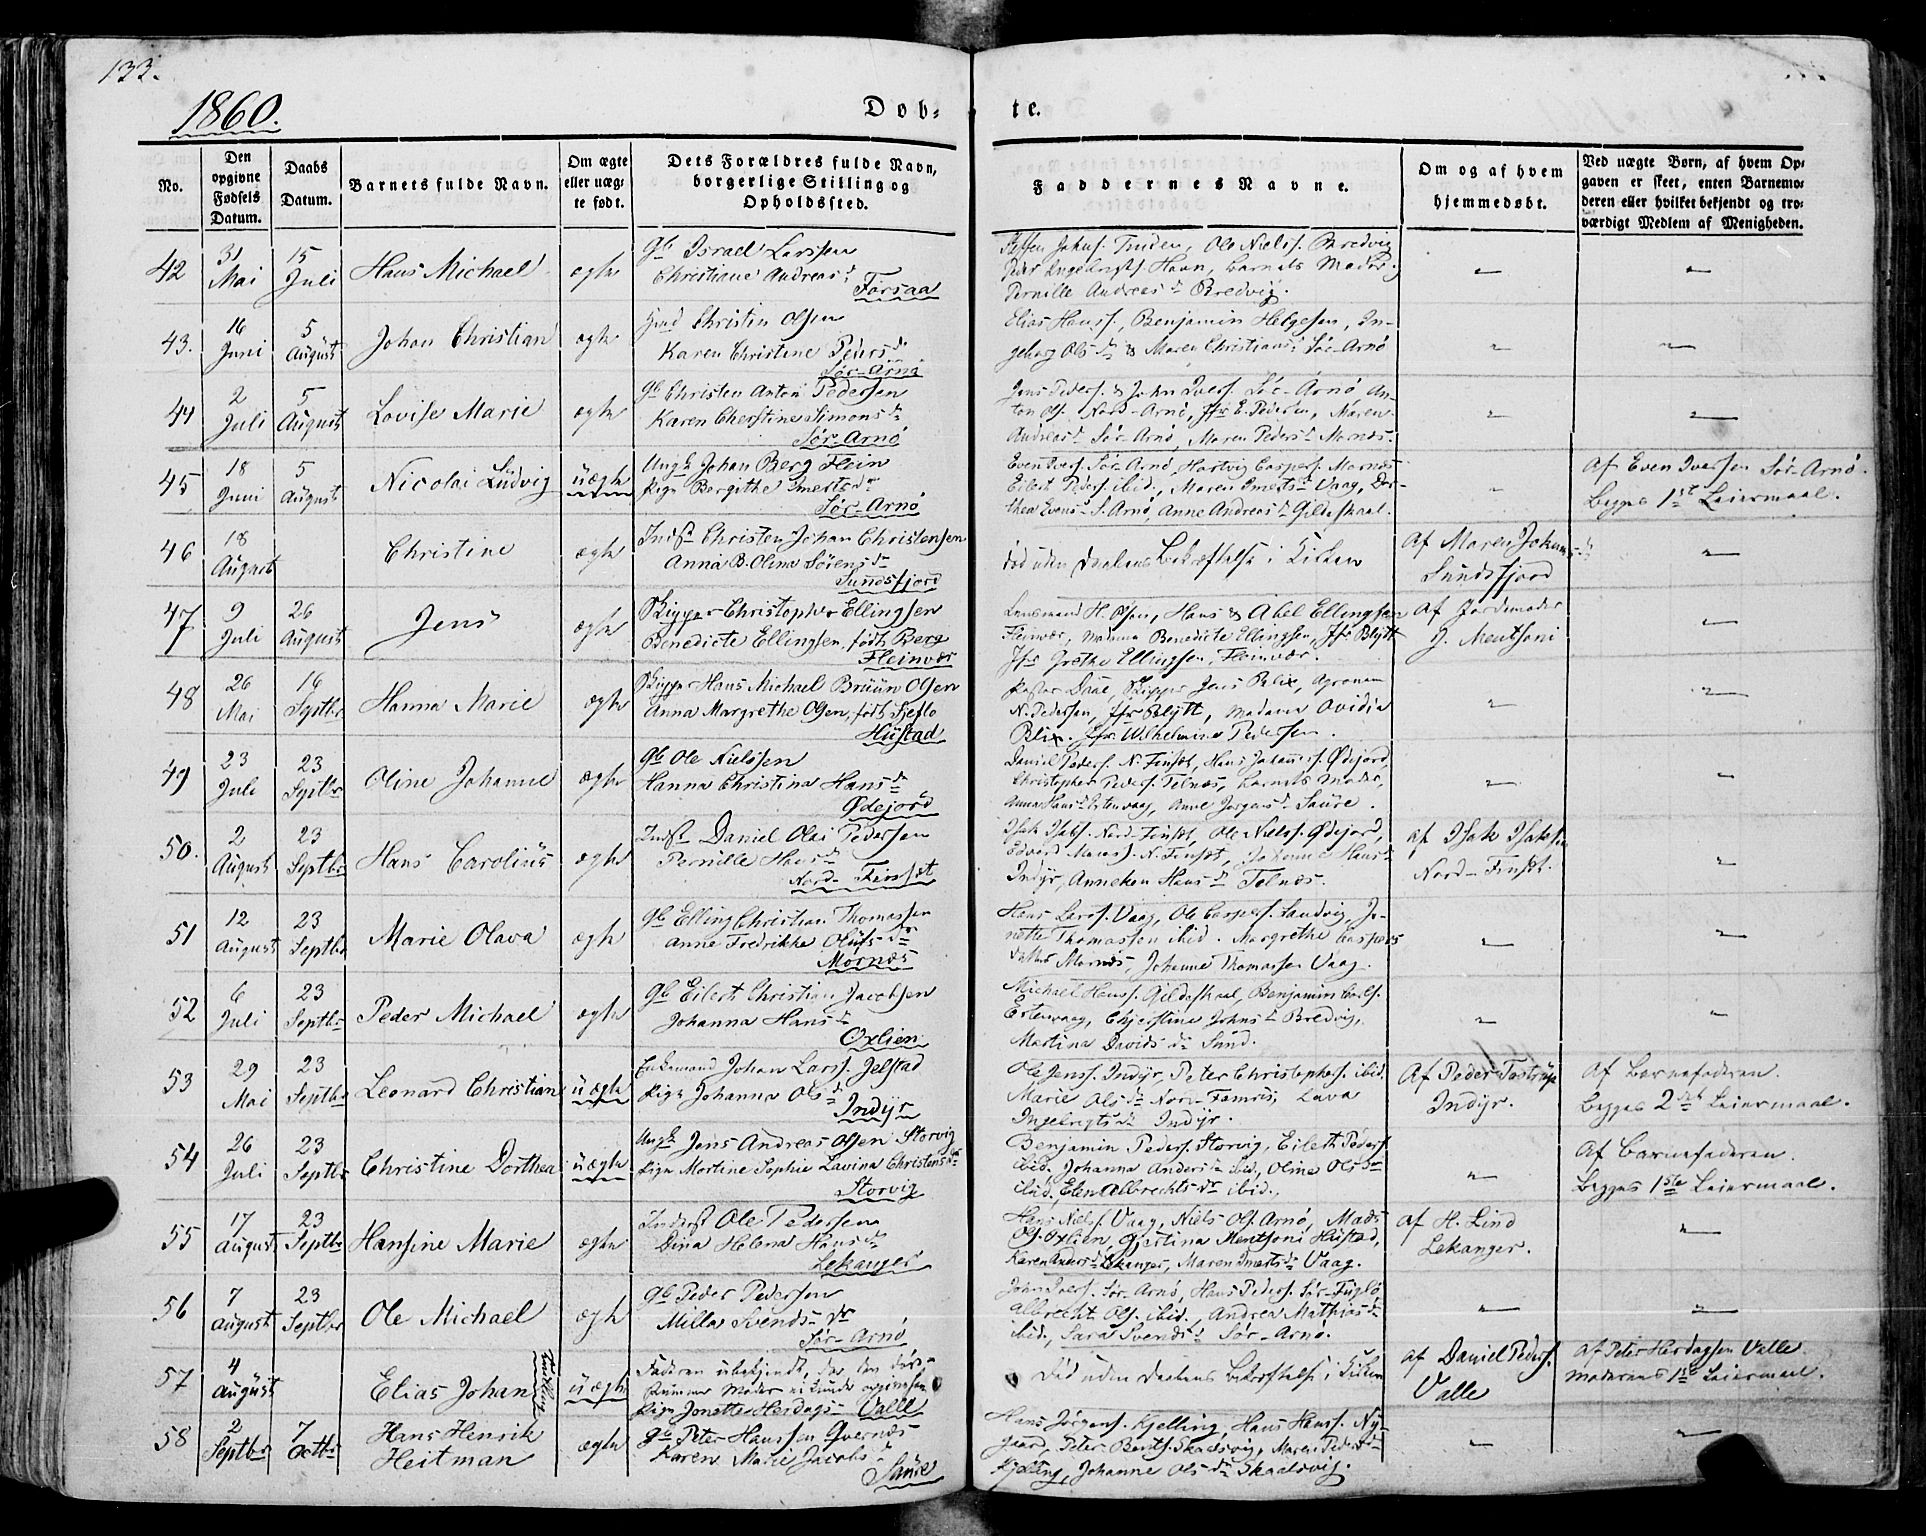 133.
1860.
Dob-
te.
No.
Den opgivne Fødsels Datum.
Daabs Datum.
Barnets fulde Navn.
Om ægte eller uægte født.
Dets Forældres fulde Navn, borgerlige Stilling og Opholdssted.
Faddernes Navne.
Om og af hvem hjemmedøbt.
Ved uægte Børn, af hvem Opgaven er skeet, enten Barnemoderen eller hvilket bekjendt og troværdigt Medlem af Menigheden.
42
31 Mai
15 Juli
Hans Michael
ægte
Gb Israel Larssen
Christiane Andreas d.
Forsaa
Ole Niels. Bredvig
Havn, barnets Moder
Pernille Andreas d. Bredvig.
43.
16 Juni
5 August
Johan Christian
ægte
Christen Olsen
Karen Christine Peders d.
Sør-Arnø
Elias Hanss., Benjamin Helgesen, In-
geborg Ols d. & Maren Christians d. Sør-Arnø
44
2 Juli
5 August
Lovise Marie
ægte
Gb Christen Anton Pedersen
Karen Cherstine Simons d.
Sør-Arnø
Jens Peders. & John Ivers. Sør-Arnø An-
ton Ols. Nord-Arnø, Jfr E. Pedersen, Maren
Andreas d. Sør-Arnø, Maren Peders d. Mornæs.
45
18 Juni
5 August
Nicolai Ludvig
uægte
Ungk Johan Berg Flein
Pige Bergithe Imerts dr
Sør-Arnø
Even Ivers. Sør-Arnø, Hartvig Caspers. Mornæs
Eilert Peders. ibid., Maren Imerts d. Vaag, Dor-
thea Evens d. S. Arnø, Anne Andreas d. Gildeskaal.
Af Even Iversen Sør-Arnø.
Begges 1ste Leiermaal.
46
18 August
Christine
ægte
Indst Christen Johan Christensen
Anna B. Oline Sørens d.
Sundsfjord
Død uden Daabens Bekræftelse i Kirken
Af Maren Johns d.
Sundsfjord
47
9 Juli
26 August
Jens
ægte
Skipper Christopher Ellingsen
Benedicte Ellingsen, født Berg
Fleinvær
Lensmand H. Olsen, Hans & Abel Ellingsen
Fleinvær, Madame Benedicte Ellingsen, Jfr Blytt
Jfr Grethe Ellingsen, Fleinvær.
Af Jordemoder
J. Mentsoni
48
26 Mai
16 Septbr
Hanna Marie
ægte
Skipper Hans Michael Bruun Olsen
Anna Margrethe Olsen, født Sjeflo
Hustad
Pastor Daae, Skipper Jens Blix, Agronom
N. Pedersen, Jfr Blytt, Madame Ovidia
Blix. Jfr Wilhelmine Pedersen.
49
23 Juli
23 Septbr
Oline Johanne
ægte
Gb Ole Nielssen
Hanna Christina Hans d.
Ødejord
Daniel Peders. N. Finsæt, Hans Johannes. Ødejord,
Christopher Peders. Telnæs, barnets Moder,
Anna Hans d. Estenvaag, Anne Jørgens d. Saure.
50.
2 August
23 Septbr
Hans Carolius
ægte
Indst Daniel Olai Pedersen
Pernille Hans d.
Nord-Finsæt
Isak Isaks. Nord-Finsæt, Ole Niels. Ødejord,
N. Finsæt, Johanne Hans d.
Indyr, Anneken Hans d. Telnæs.
Af Isak Isaksen
Nord-Finsæt.
51
12 August
23 Septbr
Marie Olava
ægte
Gb Elling Christian Thomassen
Anne Fredrikke Olufs dr
Mornæs
Hans Larss. Vaag, Ole Caspers. Sandvig, Jo-
nette Thomassen ibid. Margrethe Caspers-
datter Mornæs, Johanne Thomassen Vaag.
52
6 Juli
23 Septbr
Peder Michael
ægte
Gb Eilert Christian Jacobsen
Johanna Hans d.
Oxlien
Michael Hanss. Gildeskaal, Benjamin Carls.
Estenvaag, Cherstine Johns d. Bredvig,
Martina Davids dr Sund.
53
29 Mai
23 Septbr
Leonard Christian
uægte
Enkemand Johan Larss. Jelstad
Pige Johanna Ols d.
Indyr
Ole Jenss. Indyr, Peter Christophs. ibid.
Marie Ols dr Nord-, Lava
Ingebrigts d. Indyr.
Af Peder Tostrup
Indyr.
Af Barnefaderen.
Begges 2det Leiermaal.
54
26 Juli
23 Septbr
Christine Dorthea
uægte
Ungk Jens Andreas Olsen Storvig
Pige Martine Sophie Lavina Christens d.
Storvig
Benjamin Peders. Storvig, Eilert Peders.
ibid. Johanna Anders d. ibid, Oline Ols dr
ibid, Elen Albrechts dr ibid.
Af Barnefaderen.
Begges 1ste Leiermaal.
55
17 August
23 Septbr
Hansine Marie
ægte
Inderst Ole Pedersen
Dina Helena Hans d.
Lekanger
Hans Niels. Vaag, Niels Ols. Arnø, Mads
Ols. Oxlien, Gjertina Mentsoni Hustad,
Karen Anders d. Lekanger, Maren Imerts dr Vaag.
Af H. Lind
Lekanger.
56
7 August
23 Septbr
Ole Michael
ægte
Gb Peder Pedersen
Milla Svends-dr
Sør-Arnø
John Ivers. Sør-Arnø, Hans Peders. Sør-Fuglø
Albrecht Ols. ibid., Andrea Mathias d.
ibid., Sara Svends d. Sør-Arnø.
57
4 August
Elias Johan
Tvilling
uægte
Faderen ubekjendt, da den døv-
stumme Moder ei kunde opgive ham
Pige Jonette Herdags- Valle
Død uden Daabens Bekræftelse i Kirken
Af Daniel Peders.
Valle
Af Peter Herdagsen Valle
Moderens 1ste Leiermaal.
58
2 Septbr
7 Octbr
Hans Henrik
Heitman
ægte
Gb Peter Hanssen Qvernæs
Karen Marie Jacobs d.
Saure
Hans Jørgens. Kjelling, Hans Hanss. Ny-
gaard, Peter Bents. Skaalsvig, Maren Peders dr
Kjelling, Johanne Ols dr Skaalsvig.